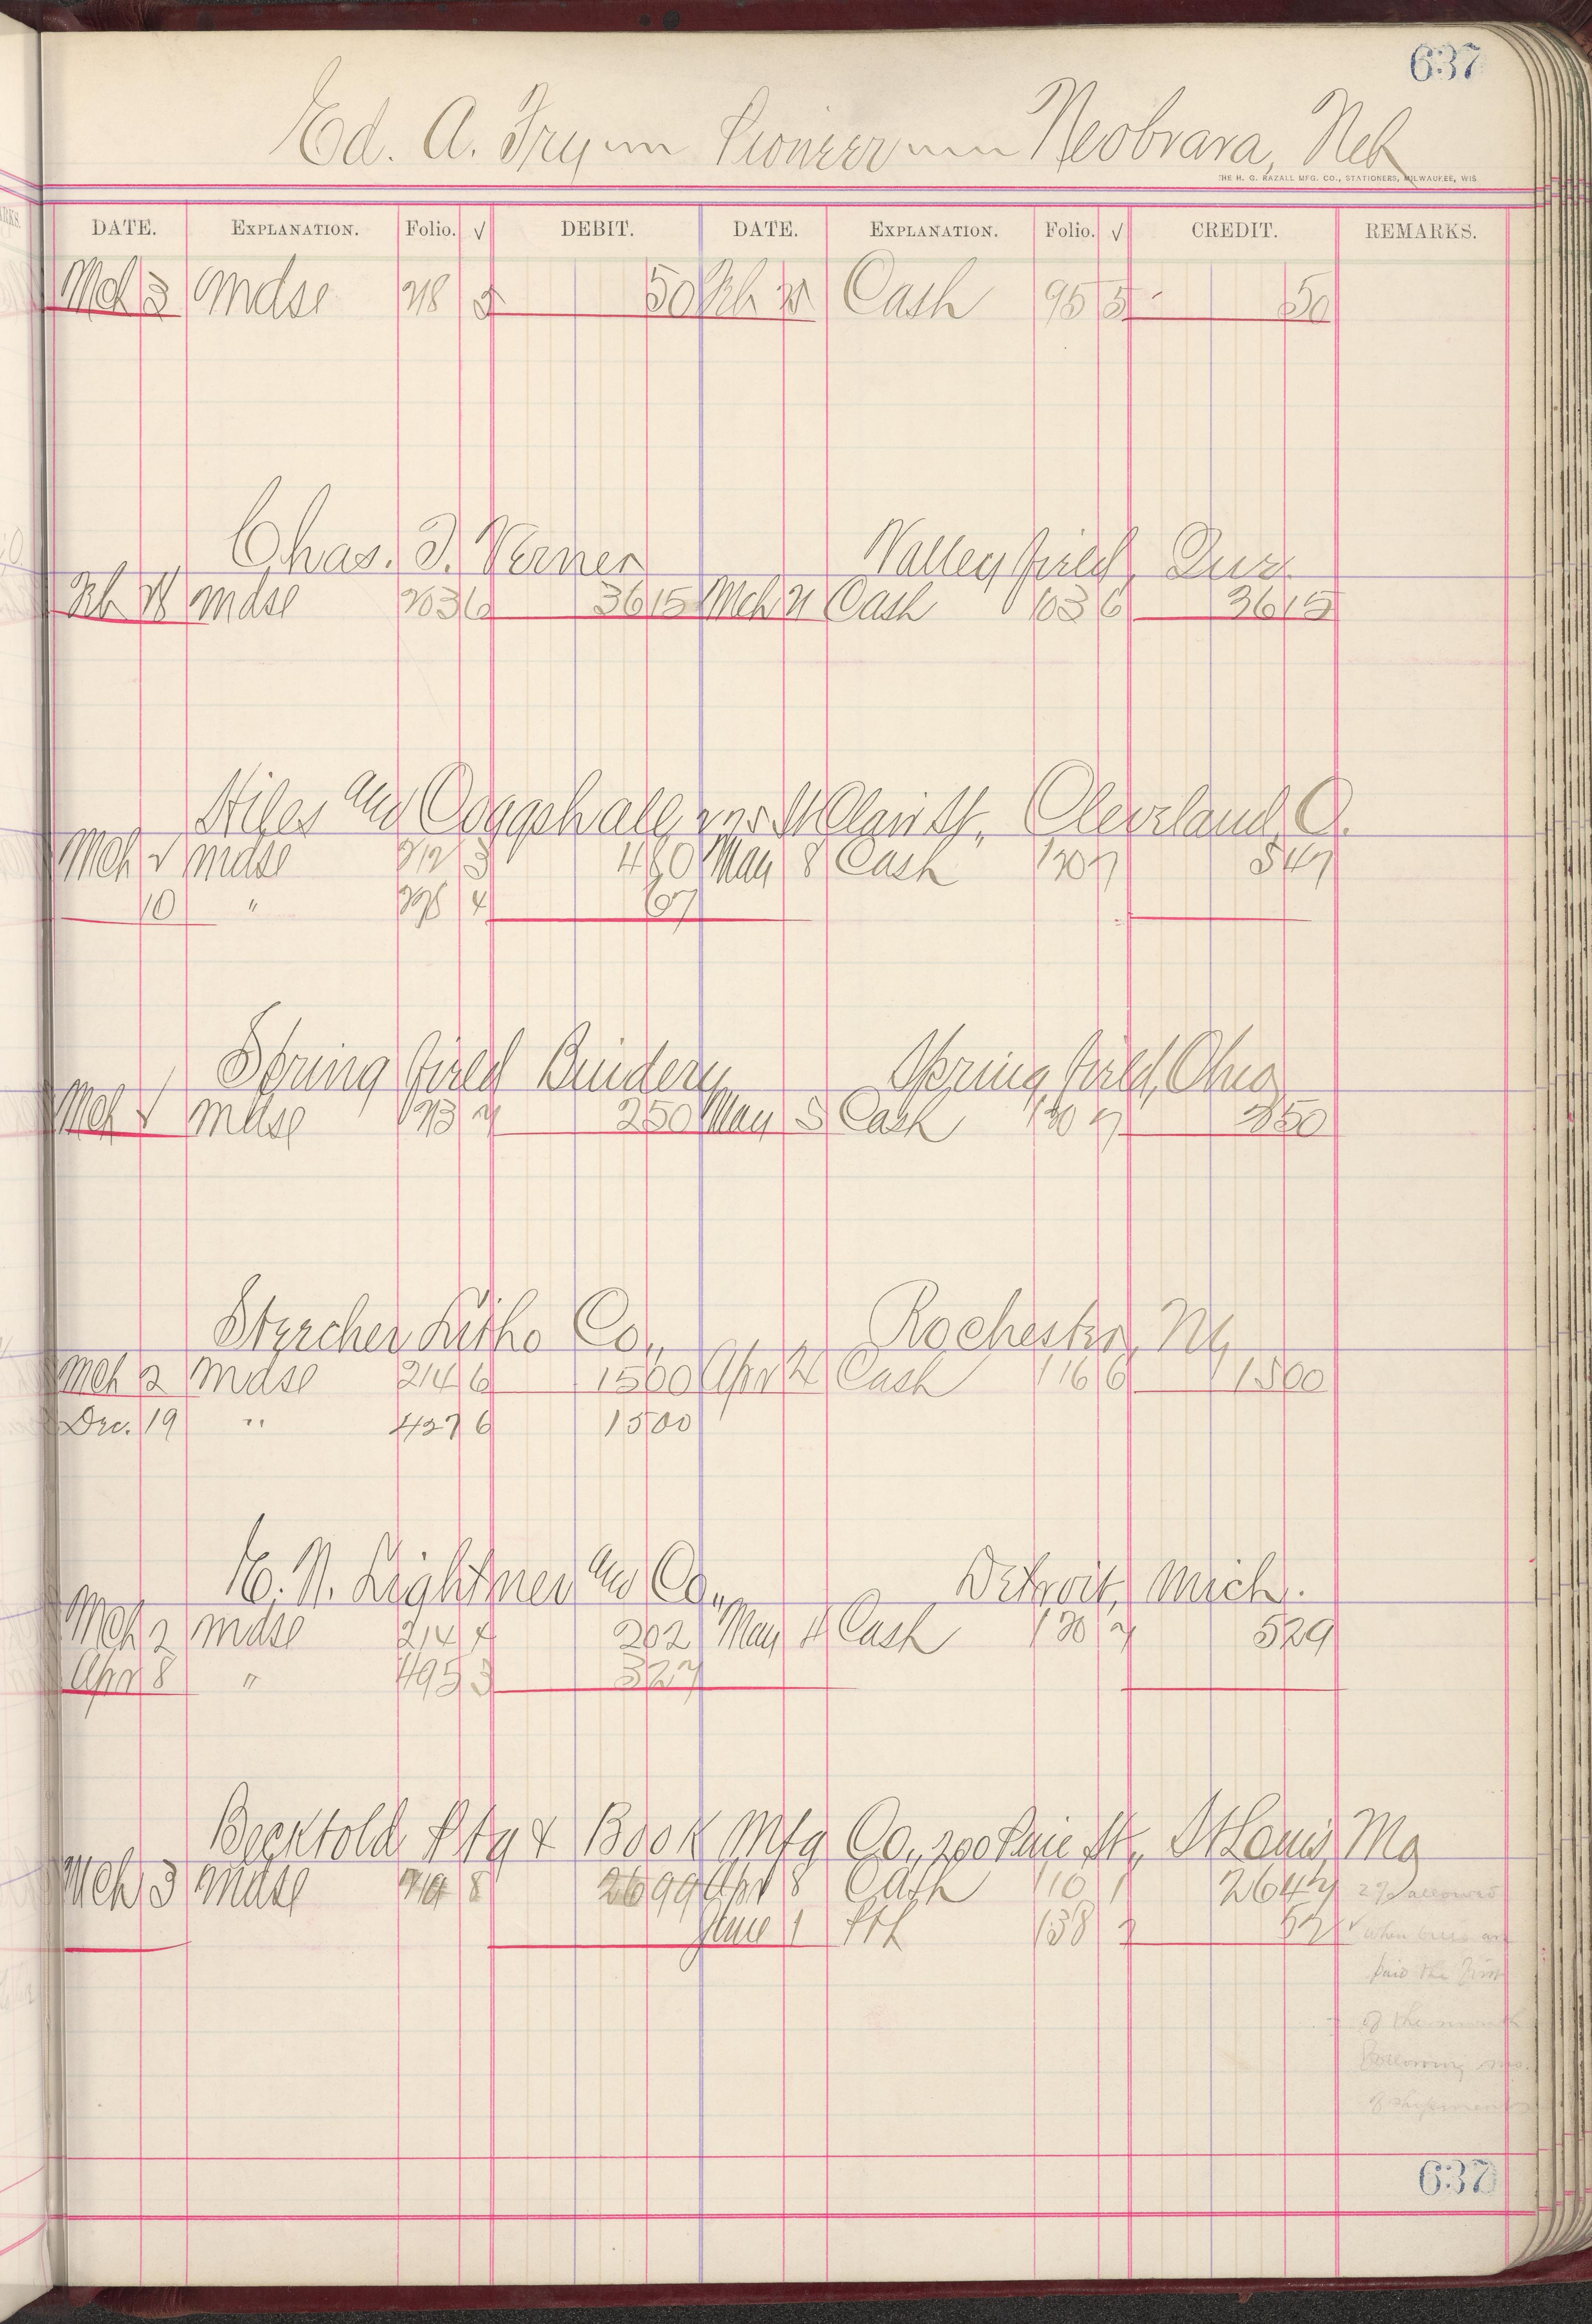 637
Ed. A. Fry Pioneer Neobrara, Neb
THE H. G. RAZALL MFG. CO., STATIONERS, MILWAUKEE, WIS.
DATE. EXPLANATION. Folio. √ DEBIT. DATE. EXPLANATION. Folio. √ CREDIT. REMARKS.
Mch 3 Mdse 218 5 50 Feb Cash 95 5 50
Chas. T. Verner Valleyfield, Que.
Feb 18 Mdse 203 6 36 15 Mch 21 Cash 103 6 36 15
Hiles and Coggshall, St Clair St. Cleveland, O.
Mch 1 Mdse 212 3 4 80 May 8 Cash 120 7 5 47
10 " 4 67
Springfield Bindery Springfield, Ohio
Mch 1 Mdse 213 7 2 50 May 8 Cash 120 7 2 50
Stercher Litho Co., Rochester, NY
Mch 2 Mdse 214 6 15 00 Apr 24 Cash 116 6 15 00
Dec. 19 " 427 6 15 00
E. N. Lightner and Co., Detroit, Mich.
Mch 2 Mdse 214 4 2 02 May 11 Cash 120 7 5 29
Apr 8 " 495 3 3 27
Becktold Ptg & Book Mfg Co., 200 Pine St., St Louis, Mo
Mch 3 Mdse 219 8 26 99 Apr 8 Cash 110 1 26 47 2% allowed
June 1 Pft 138 2 52 when bills are
paid the first
of the month
following mo.
of shipment
637